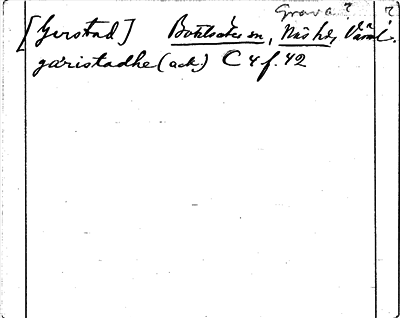 Grava ? ?
[Gerstad] Botilsäter sn, Näs hd, Värml.
gæristadhe (ack.) C 4 f. 42